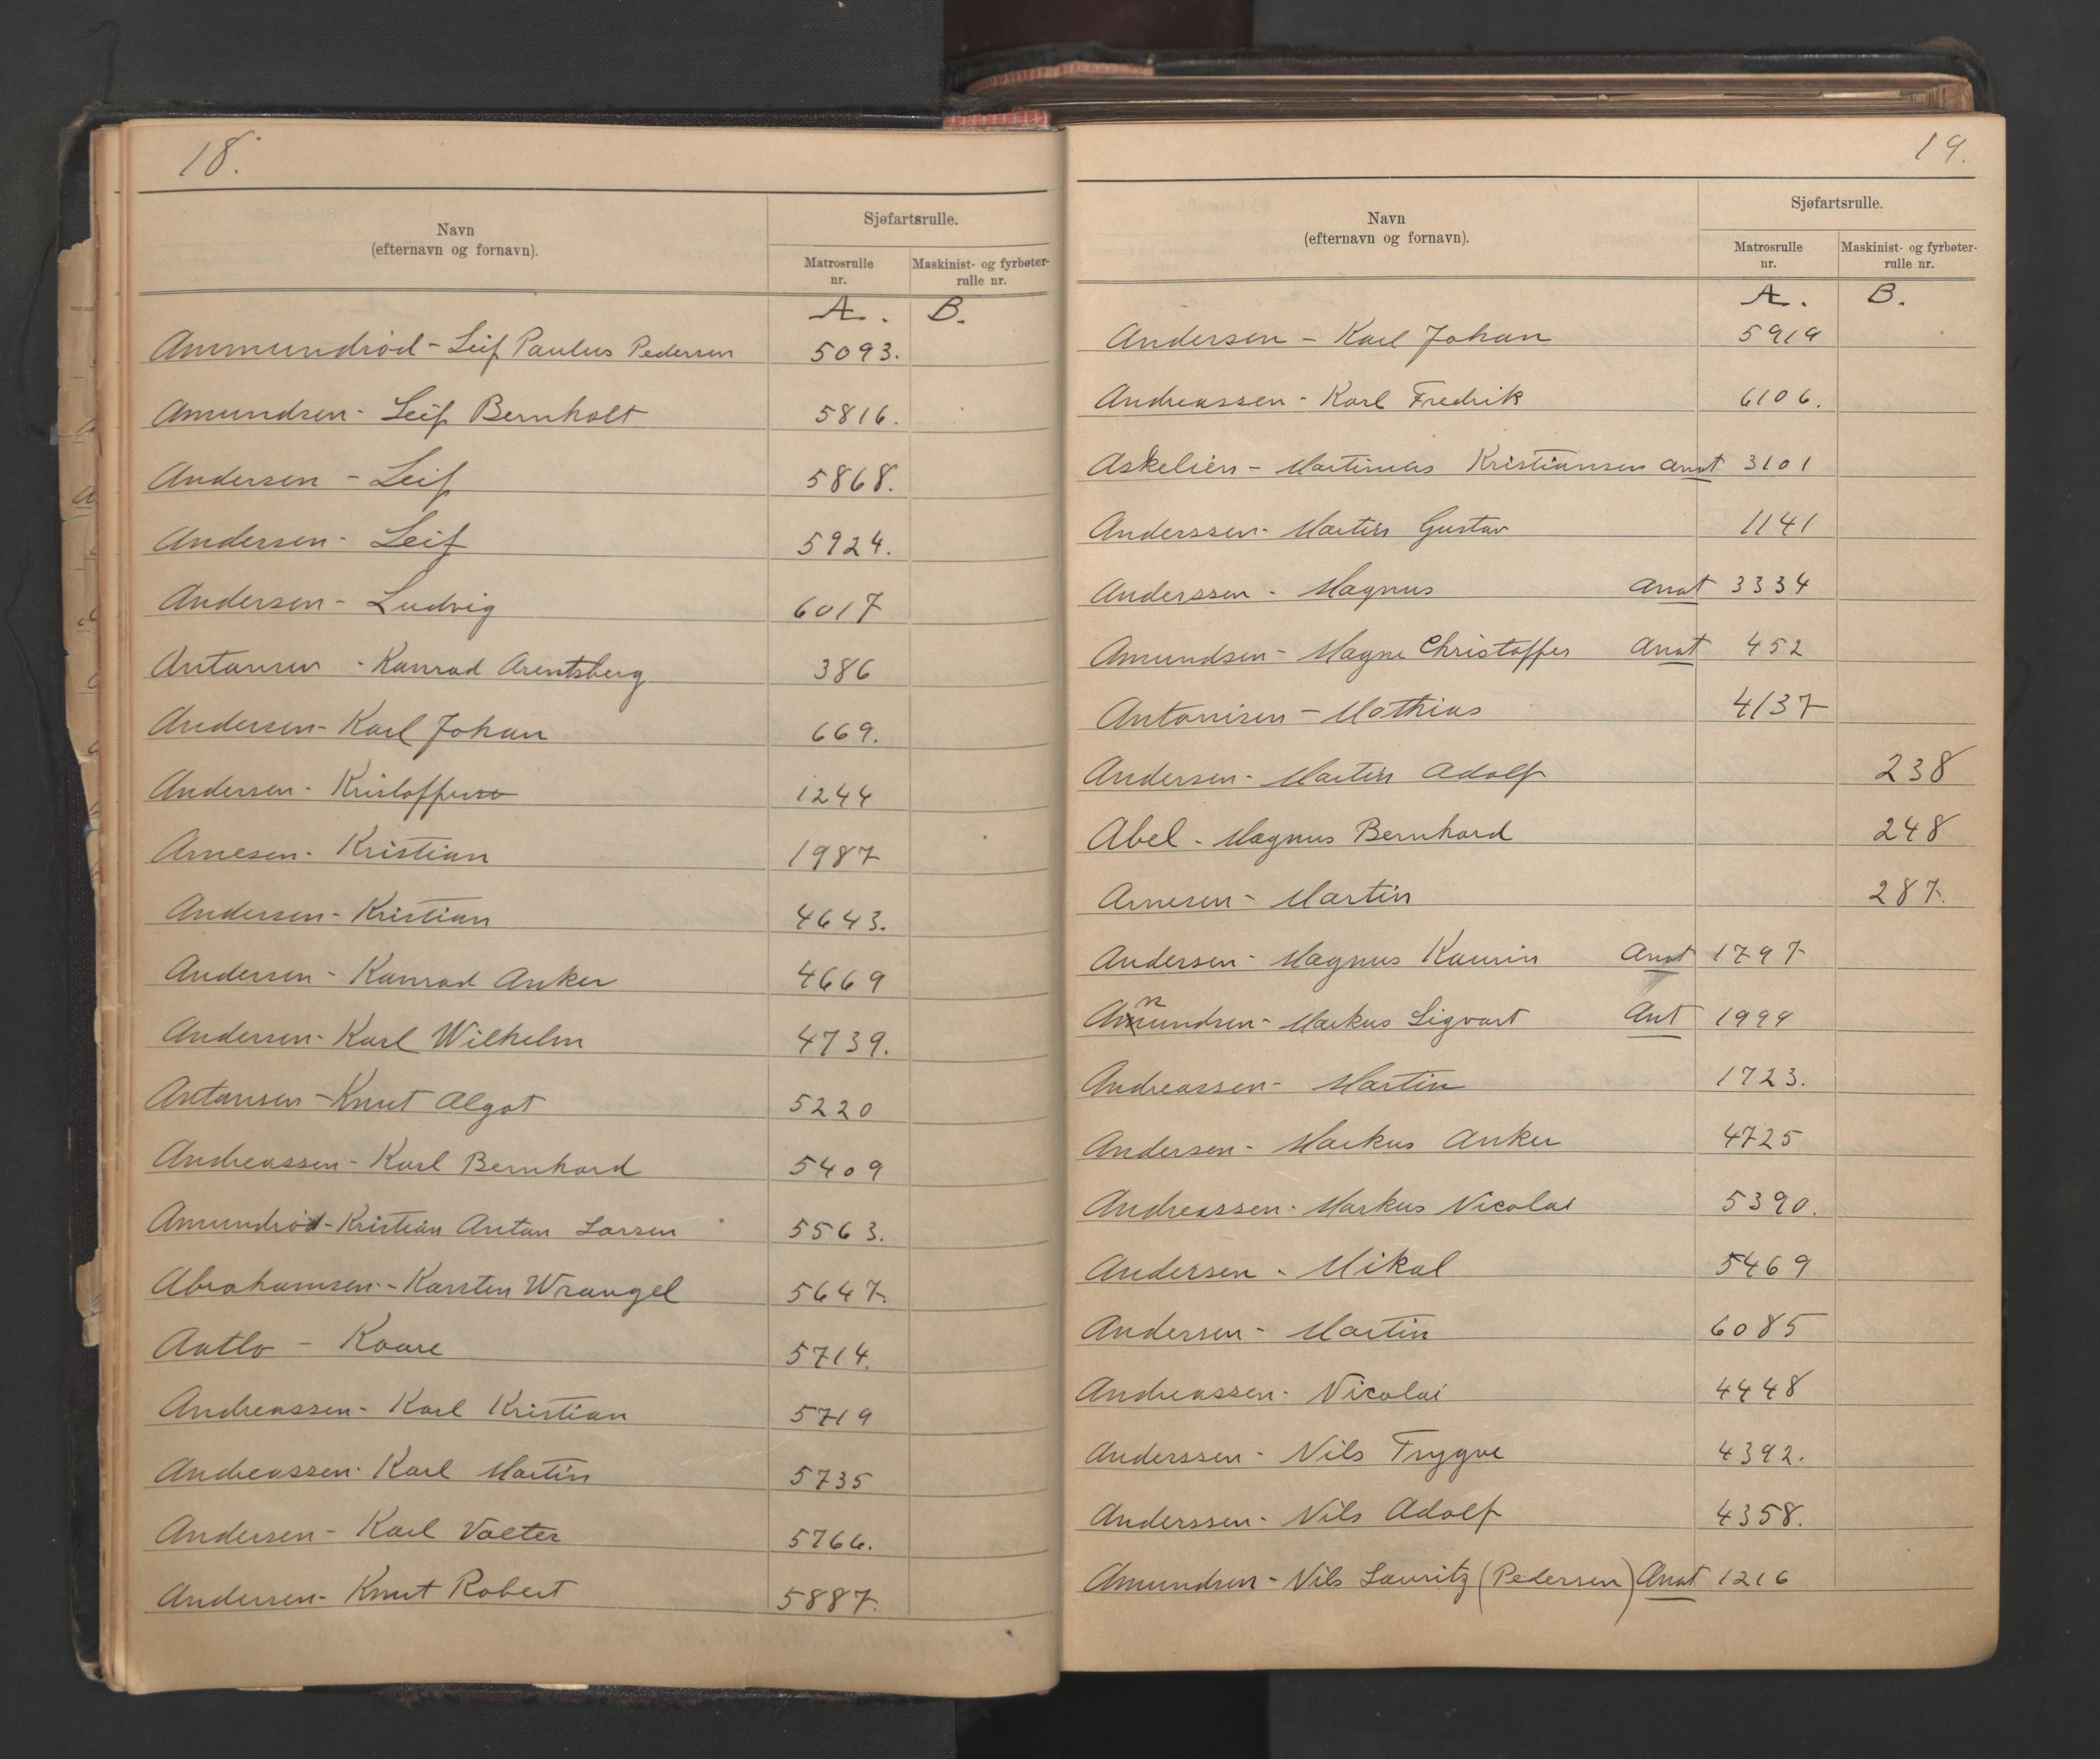 18.
Navn
(efternavn og fornavn).
Sjøfartsrulle.
Matrosrulle
nr.
Maskinist- og fyrbøter-
rulle nr.
A. B.
Ammundrød - Leif Paulus Pedersen 5093.
Amundsen - Leif Bernholt 5816.
Andersen - Leif 5868.
Andersen - Leif 5924.
Andersen - Ludvig 6017
Antonsen - Konrad Arentsberg 386
Andersen - Karl Johan 669.
Andersen - Kristoffer 1244
Arnesen - Kristian 1987
Andersen - Kristian 4643.
Andersen - Konrad Anker 4669
Andersen - Karl Wilhelm 4739.
Antonsen - Knut Algot 5220
Andreassen - Karl Bernhard 5409
Amundrød - Kristian Anton Larsen 5563.
Abrahamsen - Karsten Wrangel 5647.
Kaare 5714.
Andreassen - Karl Kristian 5719
Andreassen - Karl Martin 5735
Andersen - Karl Valter 5766.
Andersen - Knut Robert 5887.
19.
Navn
(efternavn og fornavn).
Sjøfartsrulle.
Matrosrulle
nr.
Maskinist- og fyrbøter-
rulle nr.
A. B.
Andersen - Karl Johan 5919
Andreassen - Karl Fredrik 6106.
Askelien - Martinius Kristiansen Anot 3101
Anderssen - Martin Gustav 1141
Anderssen - Magnus Anot 3334
Amundsen - Magne Christoffer Anot 452
Antonisen - Mathias 4137
Andersen - Martin Adolf 238
Abel - Magnus Bernhard 248
Arnesen - Martin 287.
Andersen - Magnus Kaurin Anot 1797
Amundsen - Markus Sigvart Ant 1999
Andreassen - Martin 1723.
Andersen - Markus Anker 4725
Andreassen - Markus Nicolai 5390.
Andersen - Mikal 5469
Andersen - Martin 6085
Andreassen - Nicolai 4448
Anderssen - Nils Trygve 4392.
Anderssen - Nils Adolf 4358.
Amundsen - Nils Lauritz (Pedersen) Anot 1216